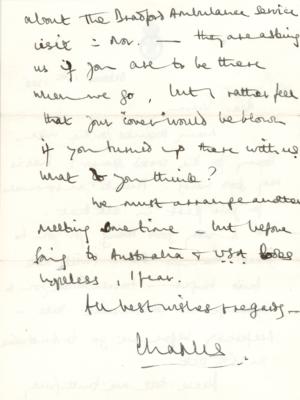 about The Bradford Ambulance Service
visit in Nov. — they are asking
us if you are to be there
when we go, but I rather feel
that your 'cover' would be blown
if you turned up there with us.
What do you think?
We must arrange another
meeting sometime - but before
going to Australia & USA looks
hopeless, I fear.
All best wishes & regards —
Charles